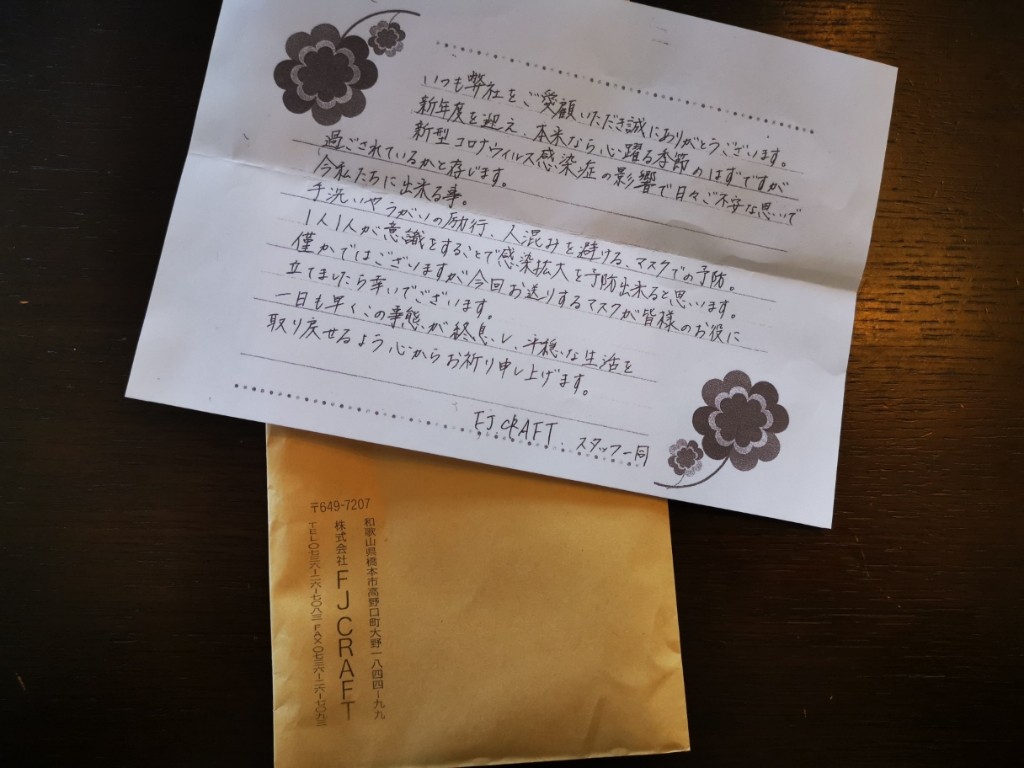 いつも弊社をご愛顧いただき誠にありがとうございます。
新年度を迎え、本来なら心躍る季節のはずですが
新型コロナウィルス感染症の影響で日々ご不安な思いで
過ごされているかと存じます。
今私たちに出来る事。
手洗いやうがいの励行、人混みを避ける、マスクでの予防。
1人1人が意識をすることで感染拡大を予防出来ると思います。
僅かではございますが今回お送りするマスクが皆様のお役に
立てましたら幸いでございます。
一日も早くこの事態が終息し平穏な生活を
取り戻せるよう心からお祈り申し上げます。
FJ CRAFT、スタッフ一同
〒649-7207
和歌山県橋本市高野口町大野一八四四-九九
株式会社 FJ CRAFT
TEL〇七三六-二六-七〇八三 FAX〇七三六-二六-七〇九三